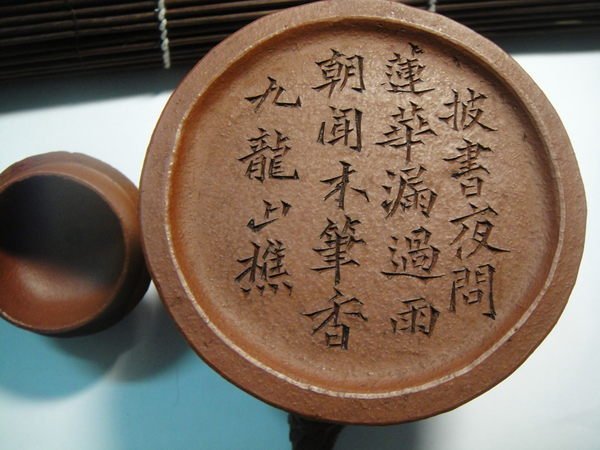 披書夜問
蓮華漏過雨
朝聞木筆香
九龍山樵